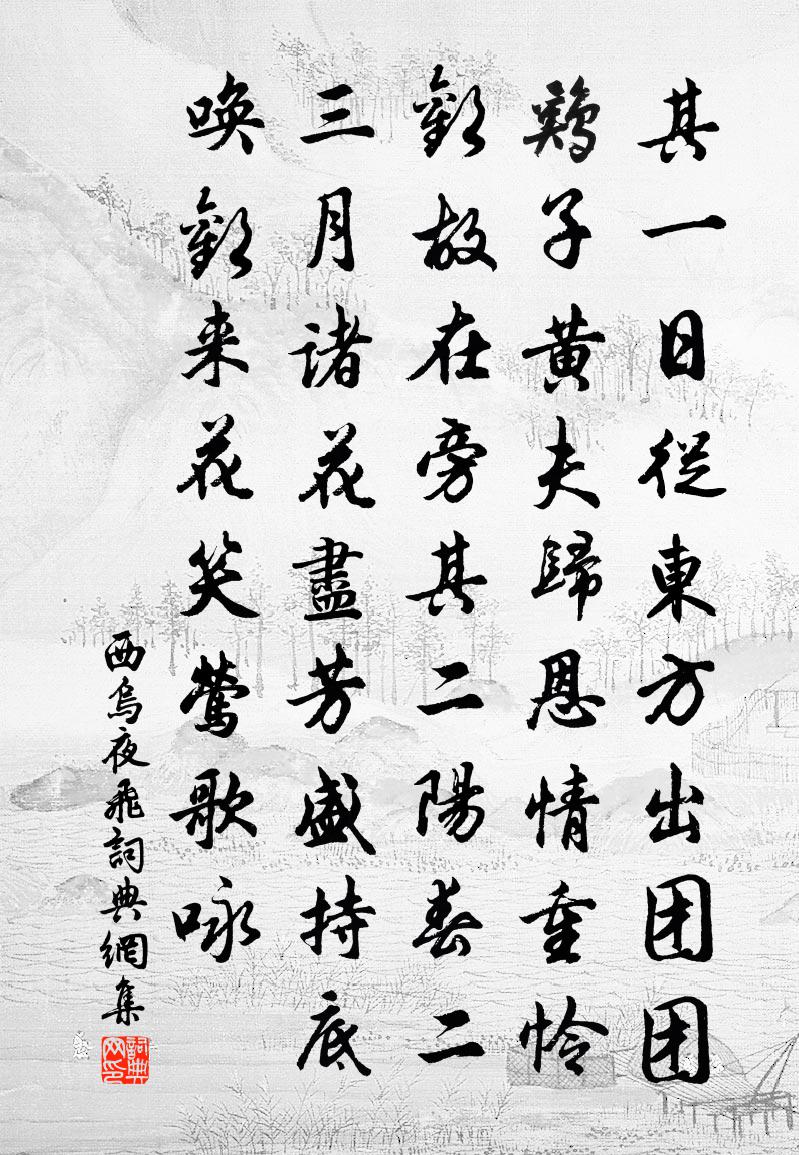 其一日從東方出团团
鷄子黄夫歸恩情重怜
歡故在旁其二陽春二
三月诸花盡芳盛持底
唤歡来花笑鶯歌咏
西烏夜飛詞典網集
詞典网印